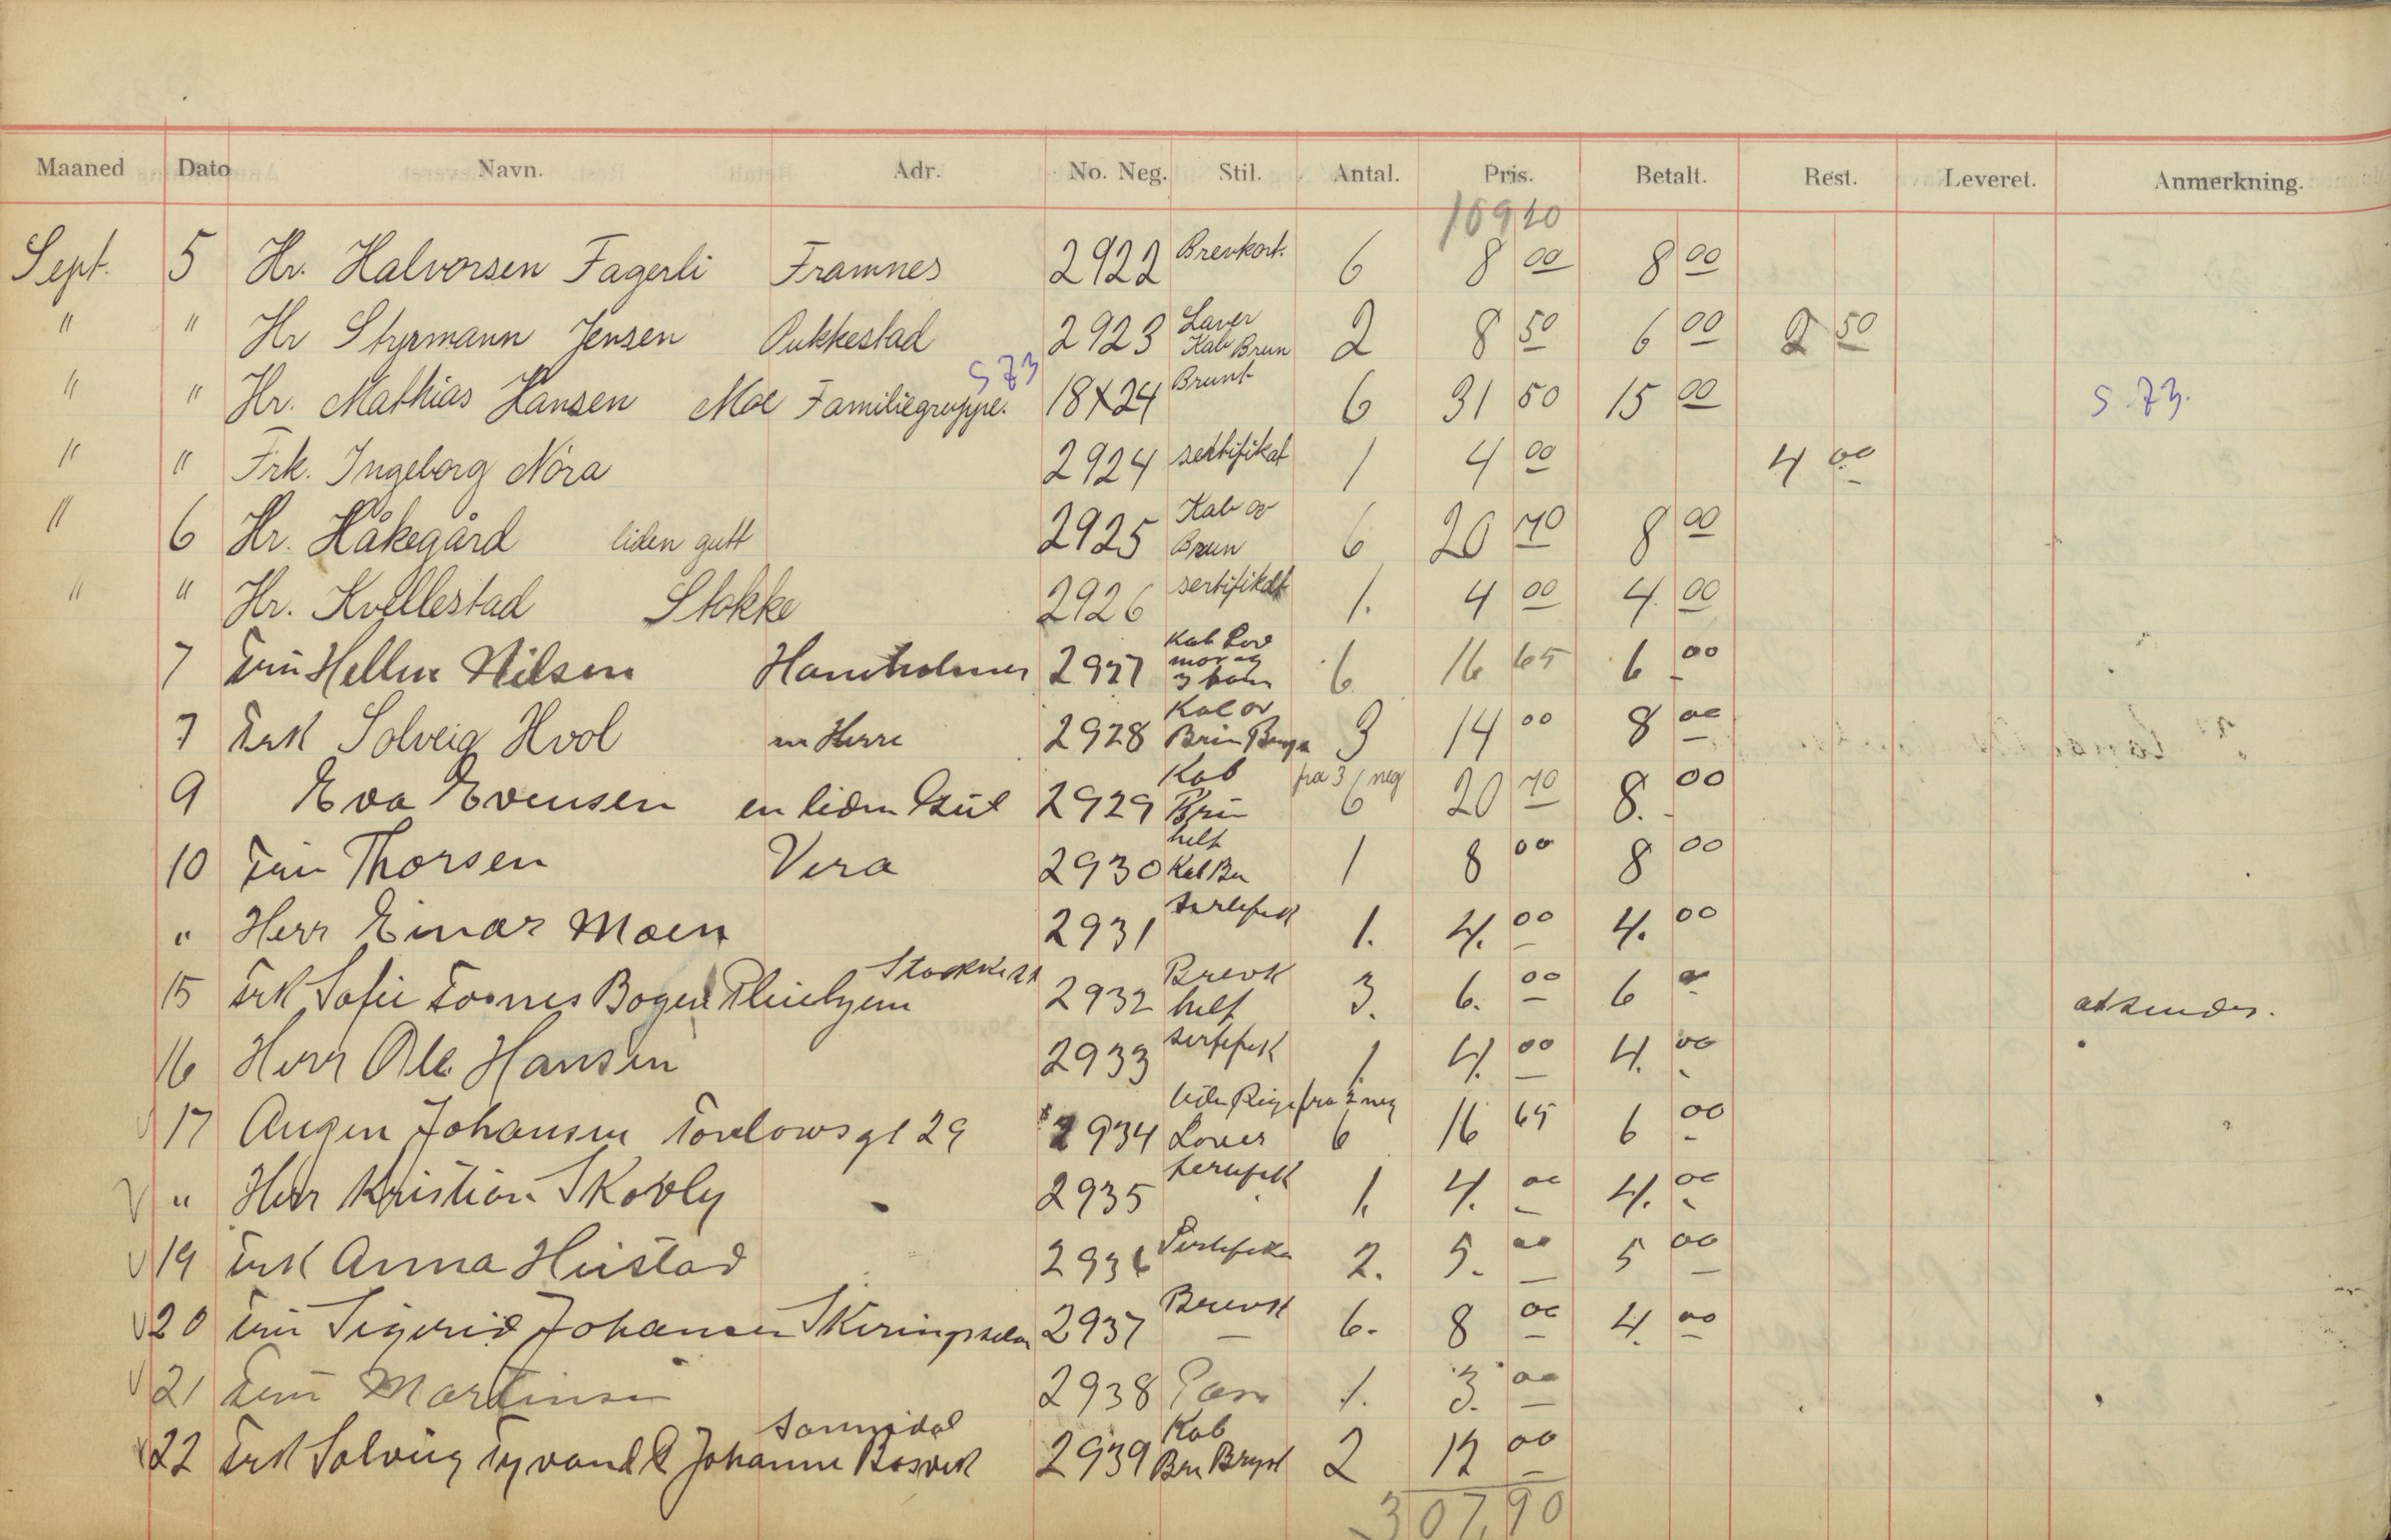 Maaned Dato Navn. Adr. No. Neg. Stil. Antal. Pris. Betalt. Rest. Leveret. Anmerkning.
109 20
Sept. 5 Hr. Halvorsen Fagerli Framnes 2922 Brevkort. 6 8 00 8 00
" " Hr Styrmann Jensen Pukkestad 2923 Laver Kab Brun 2 8 50 6 00 2 50
" " Hr. Mathias Hansen Moe Familiegruppe. S 73 18x24 Brunt 6 31 50 15 00 S. 73.
" " Frk. Ingeborg Nóra 2924 sertifikat 1 4 00 4 00
" 6 Hr. Håkegård liden gutt 2925 Kab ov Brun 6 20 70 8 00
" " Hr. Kvellestad Stokke 2926 sertifikat 1. 4 00 4 00
7 Fru Hellen Nilsen 2927 Kab mor og 3 barn 6 16 65 6 00
7 Frk Solveig Hvol m Herre 2928 Kab ov Brun 3 14 00 8 00
9 Eva Evensen en liden 2929 Kab Brun fra 3 neg 6 20 70 8. 00
10 Fru Thorsen Vera 2930 helt Kab Bru 1 8 00 8 00
" Herr Einar Moen 2931 1. 4. 00 4. 00
15 Frk Sofie Bogen 2932 Brevk helt 3. 6. 00 6 00 atsendes.
16 Herr Ole Hansen 2933 sertifik 1 4. 00 4. 00
V 17 Augen Johansen gt 29 2934 liden Pige fra 2 neg Laver 6 16 65 6 00
V " Herr Kristian Skovly 2935 1. 4. 00 4. 00
V 19 Frk Anna Huistad 2936 Sertifika 2. 5. 00 5 00
V 20 Fru Sigerid Johansen 2937 Brevk 6. 8 00 4. 00
V 21 Fru Martinsen 2938 Pass 1. 3. 00
22 Frk Solveig Tyvand & Johanne Bosvik Sannidal 2939 Kab Bru Bryst 2 12 00
307,90